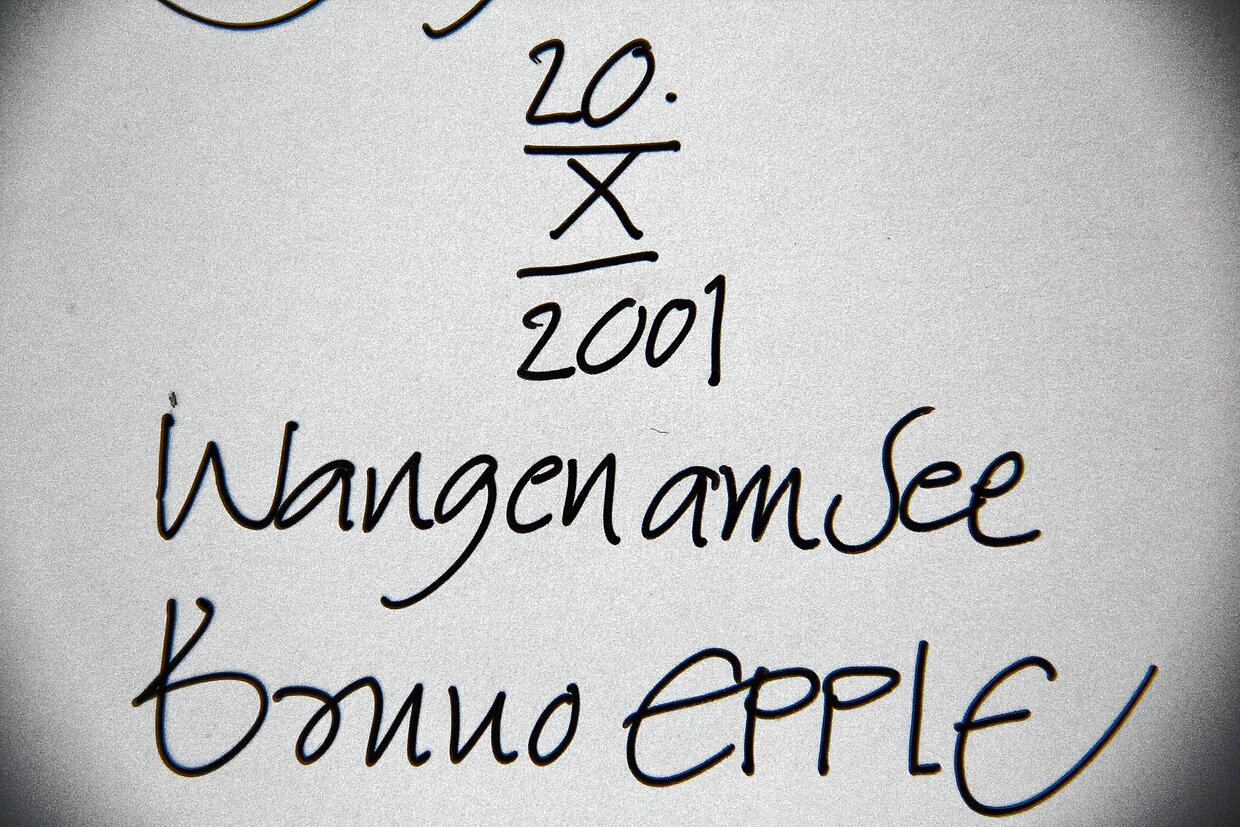 20.
X
2001
Wangen am See
Bruno EPPLE